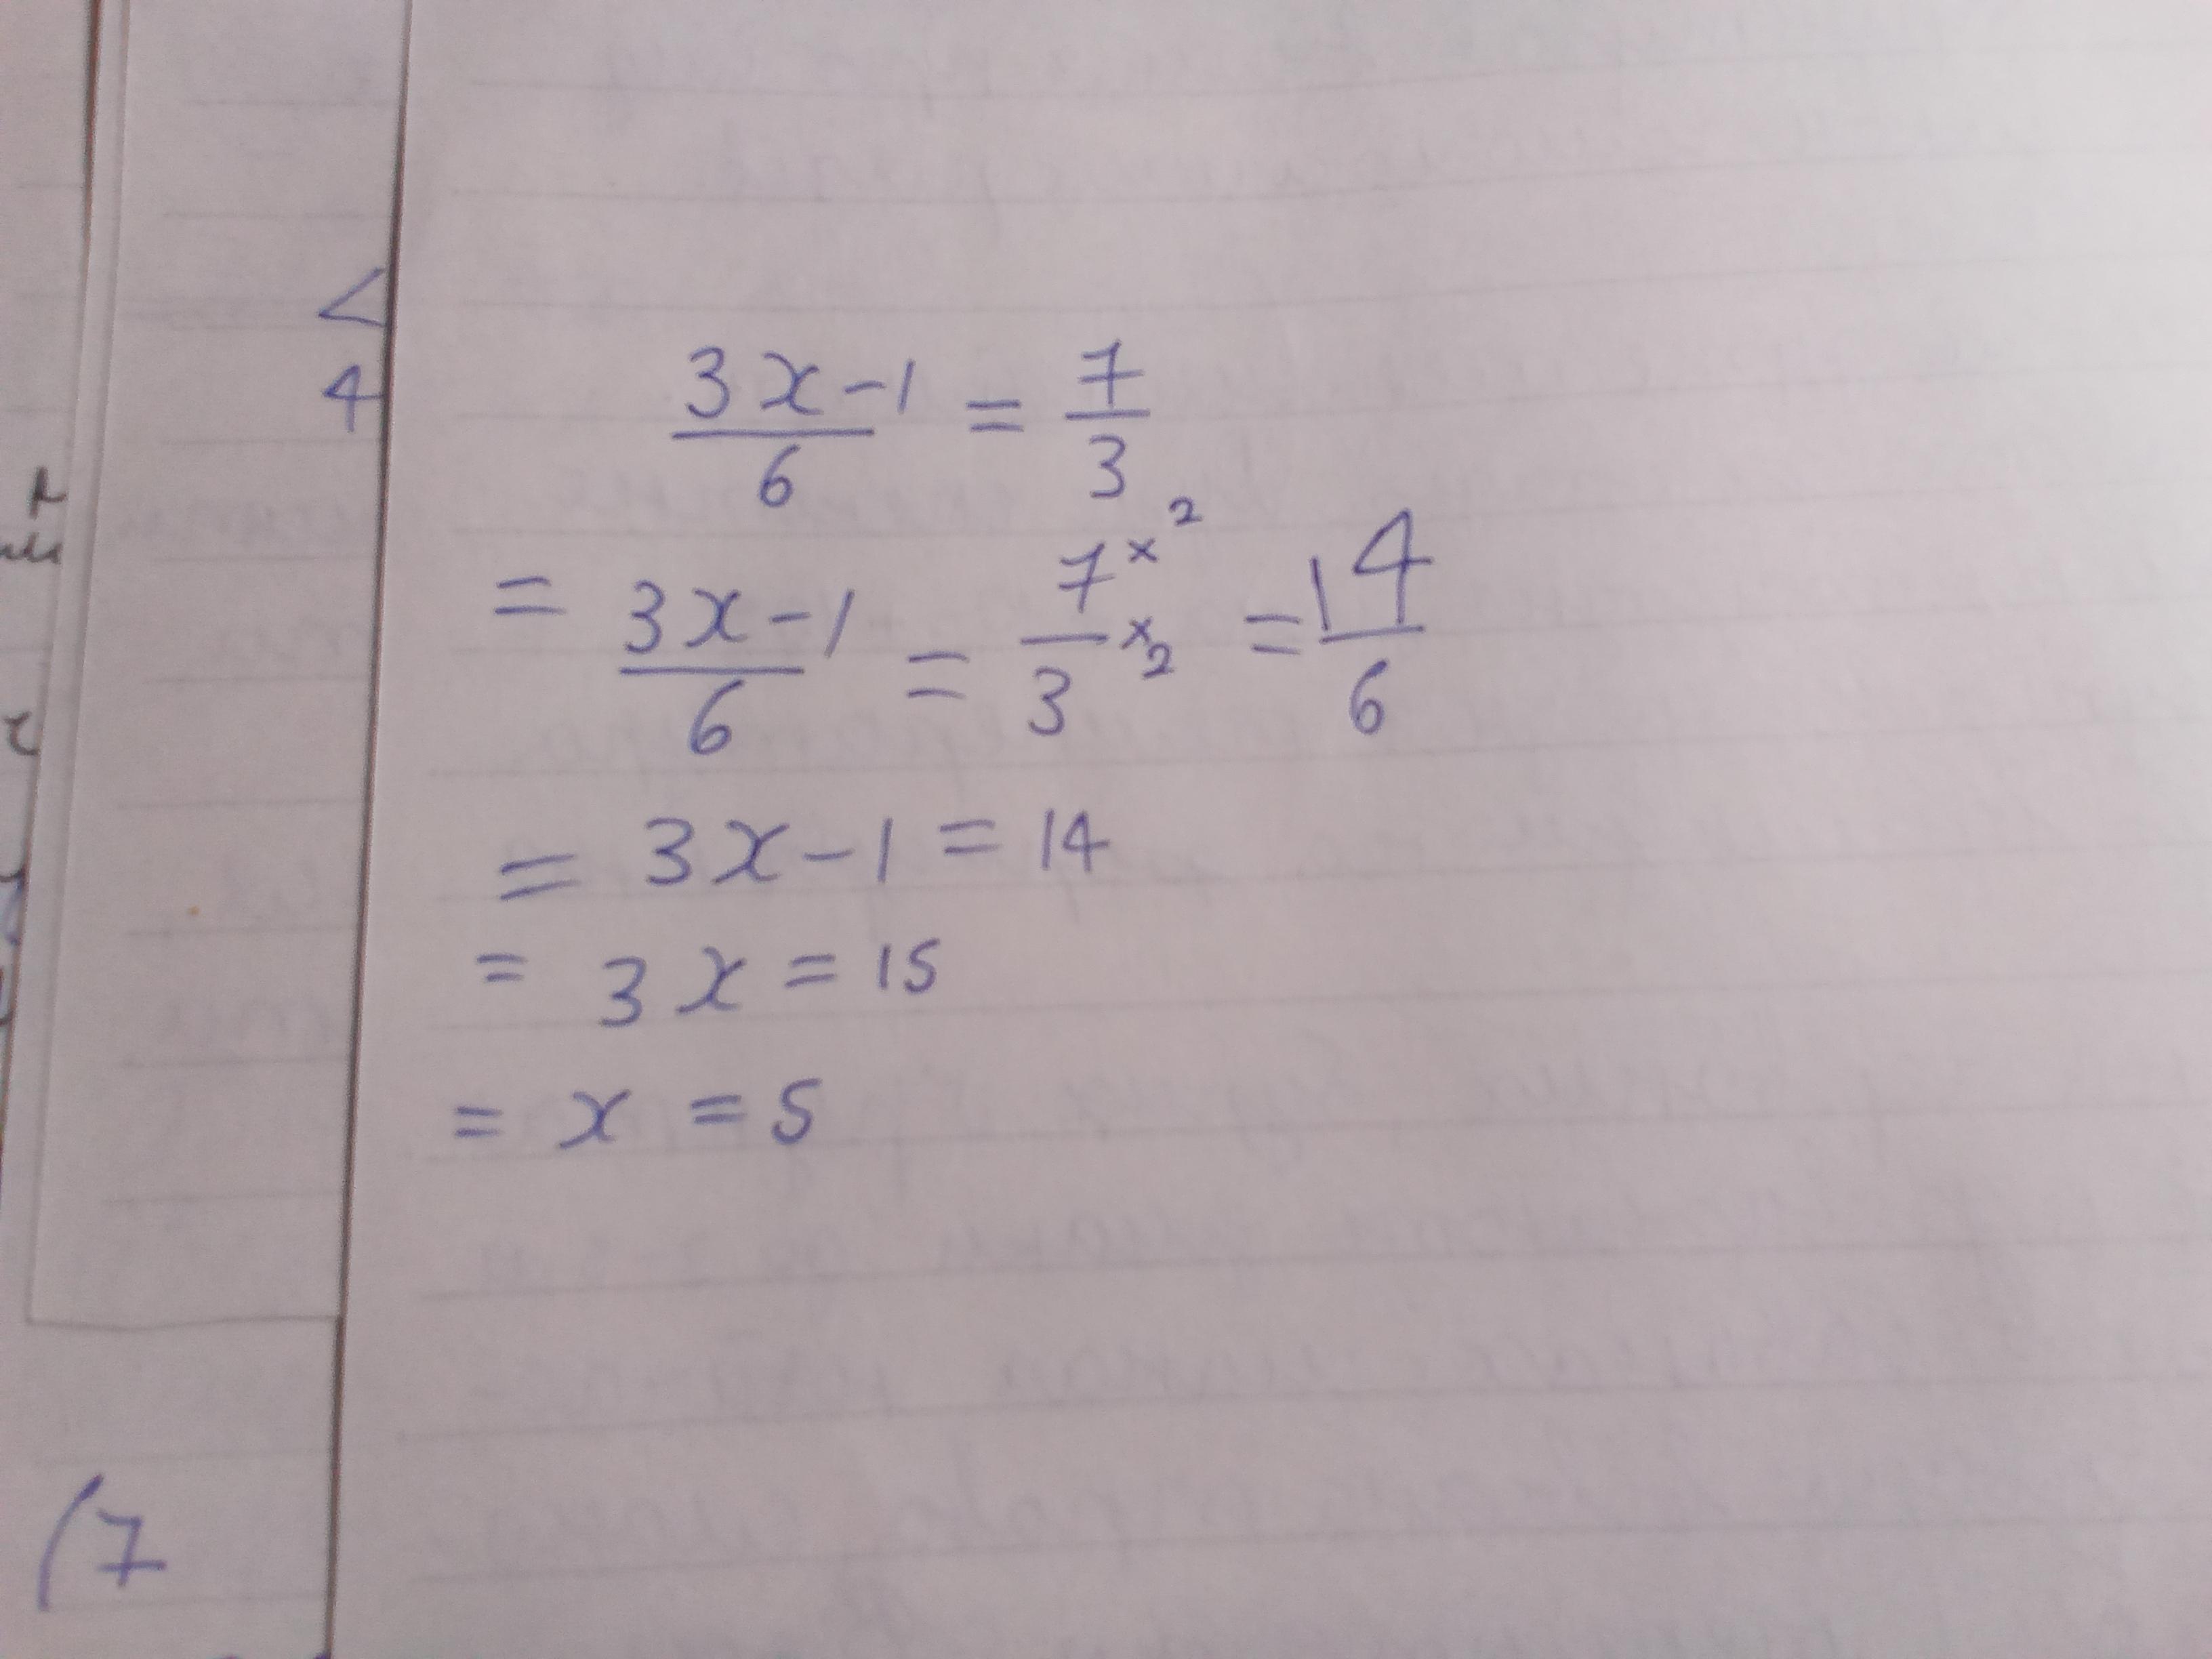 <
4
3x-1/6 = 7/3
= 3x-1/6 = 7×2/3×2 = 14/6
= 3x-1 = 14
= 3x = 15
= x = 5
(7